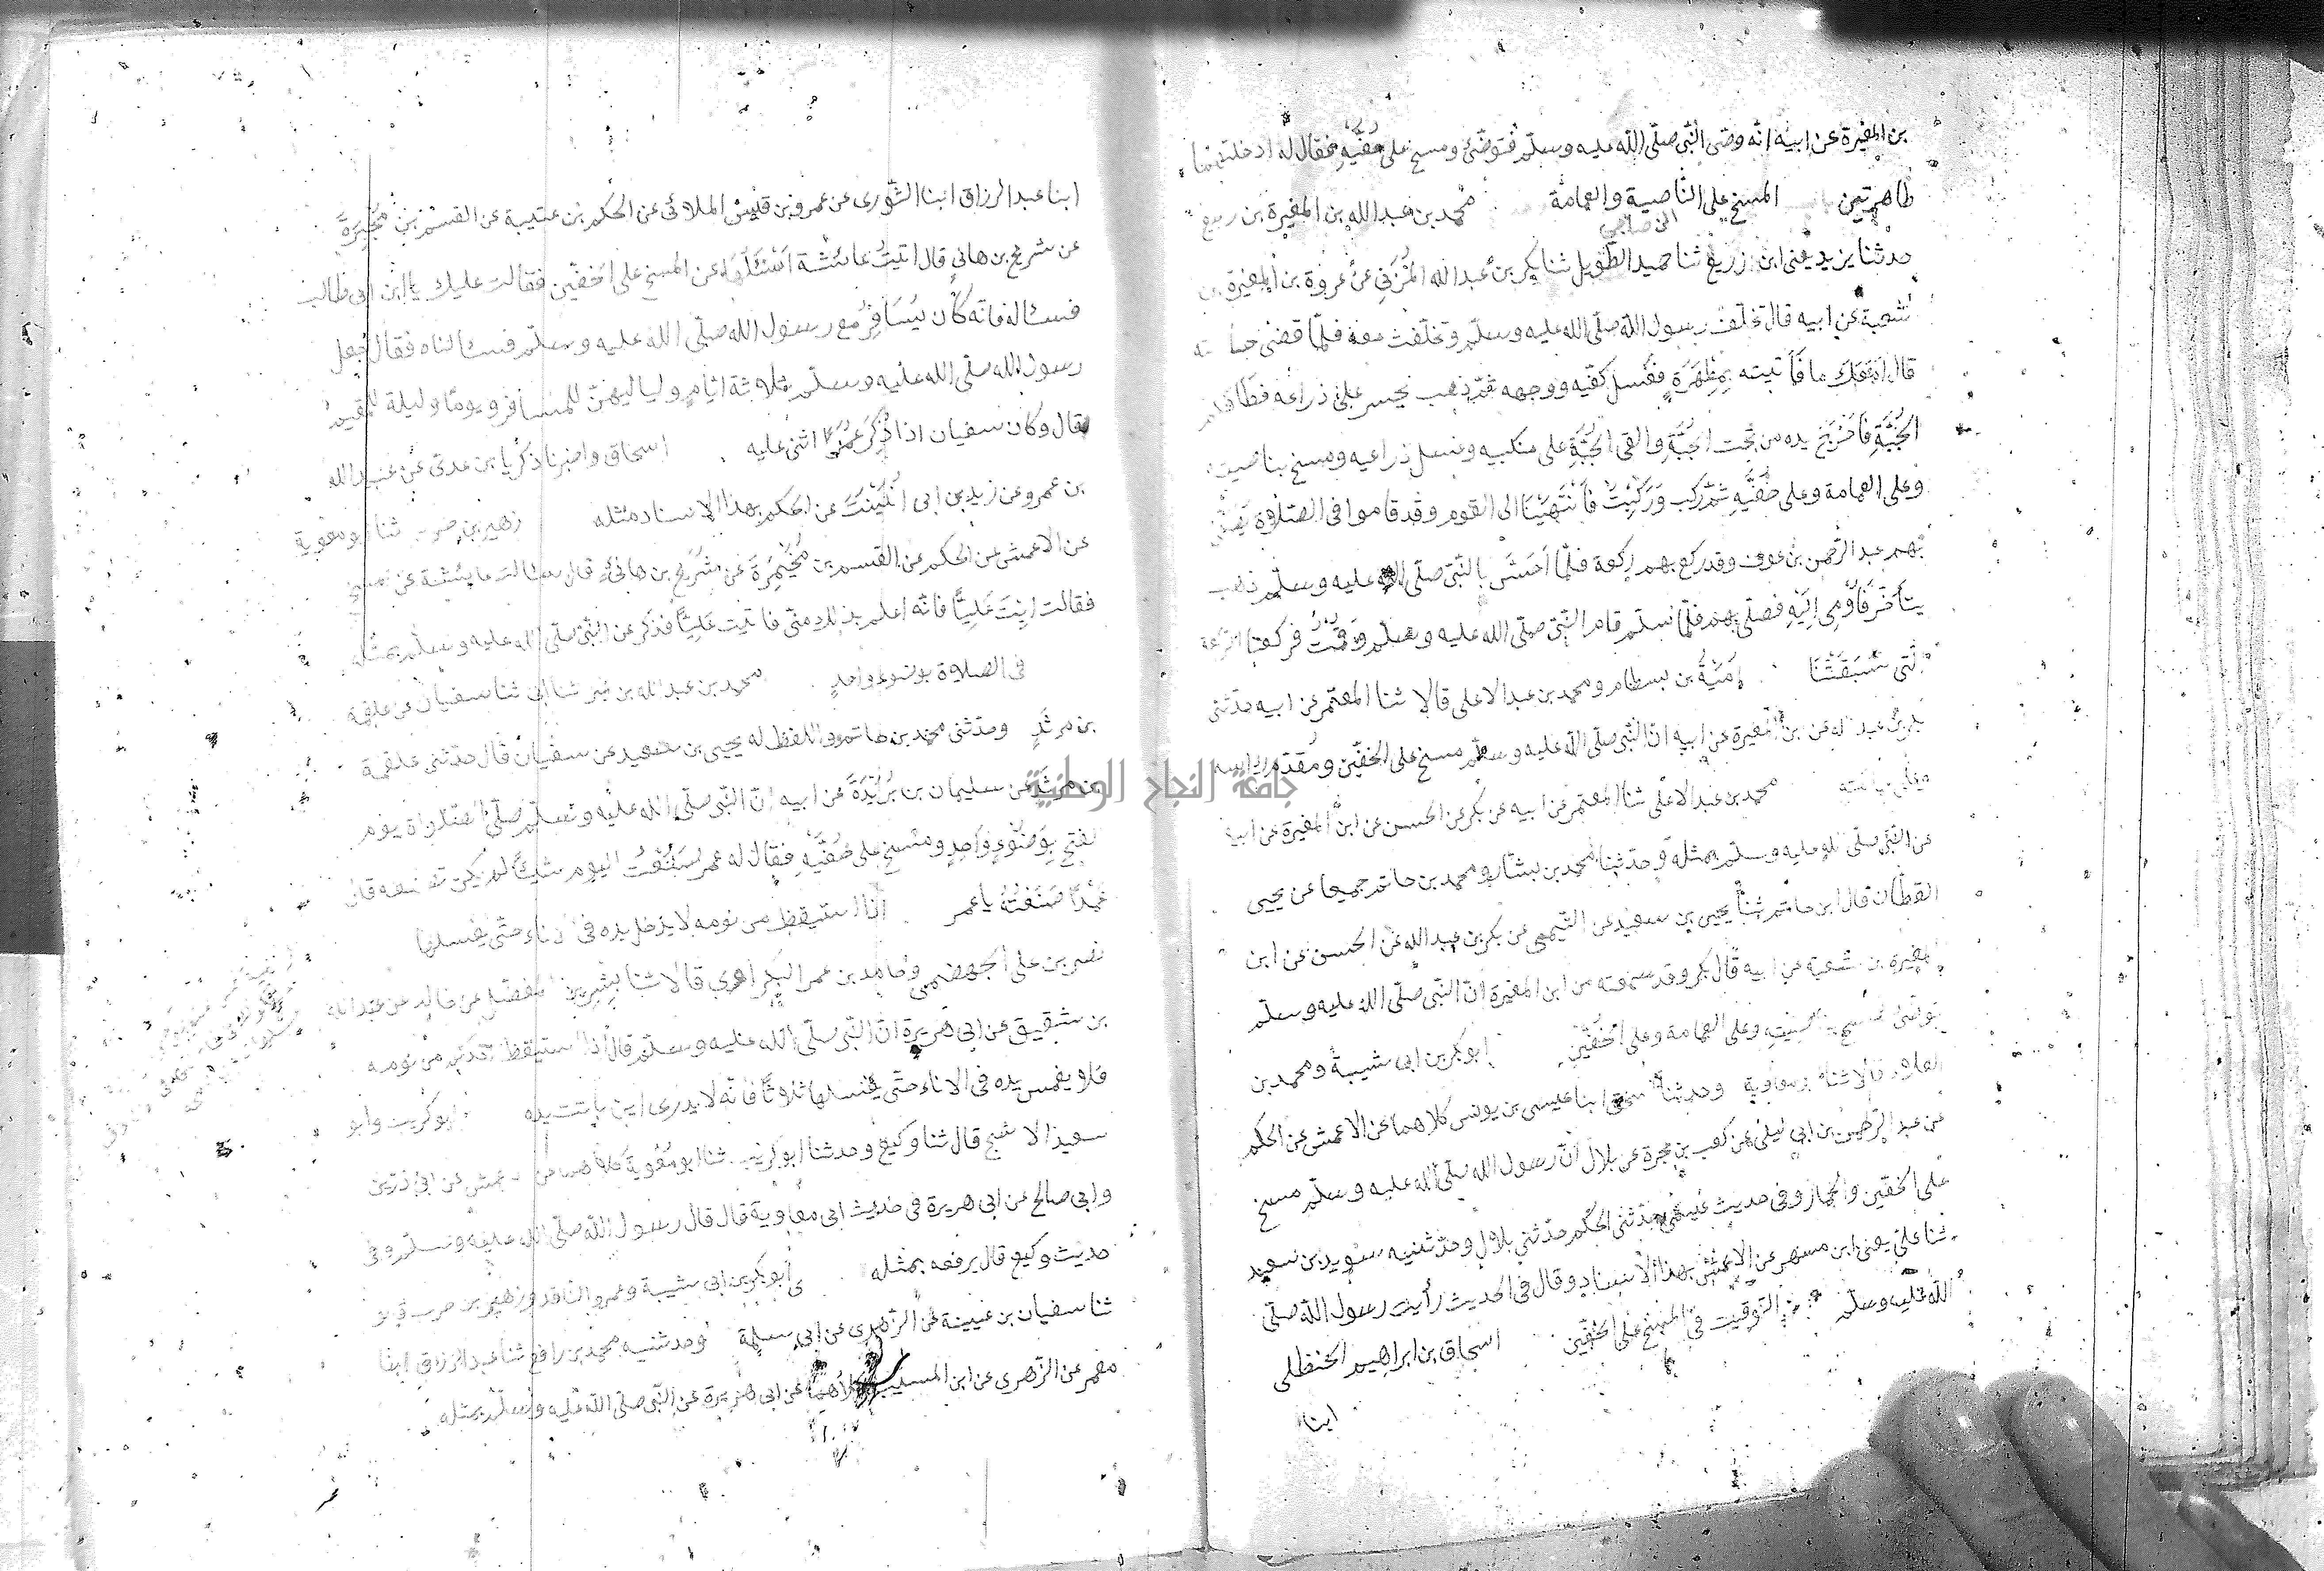 بن المغيرة عن ابيه انه وضى النبى صلى الله عليه وسلم فتوضئ ومسح على خفيه فقال له ادخلتهما
طاهرتين المسح على الناصية والعمامة محمد بن عبد الله بن
حدثنا يزيد يعنى ابن زريع ثنا حميد الطويل ثنا بكر بن عبد الله المزنى عن عروة بن المغيرة بن
شعبة عن ابيه قال تخلف رسول الله صلى الله عليه وسلم وتخلفت معه فلما قضى
قال امعك ما فأتيته بمطهرة فغسل كفيه ووجهه ثم ذهب يحسر على ذراعه فضاق
الجبة فأخرج يده من تحت الجبة والقى الجبة على منكبيه وغسل ذراعيه ومسح
وعلى العمامة وعلى خفيه ثم ركب وركبت فانتهينا الى القوم وقد قاموا فى الصلاوة
بهم عبد الرحمن بن عوف وقد ركع بهم ركعة فلما احس بالنبى صلى الله عليه وسلم ذهب
يتأخر فأومى اليه فصلى بهم فلما سلم قام النبى صلى الله عليه وسلم وقمت فركعنا
التى سبقتنا امية بن بسطام ومحمد بن عبد الاعلى قالا ثنا المعتمر عن ابيه حدثنى
عن ابن المغيرة عن ابيه ان النبى صلى الله عليه وسلم مسح على الخفين ومقدم راسه
محمد بن عبد الاعلى ثنا المعتمر عن ابيه عن بكر عن الحسن عن ابن المغيرة عن ابيه
عن النبى صلى الله عليه وسلم بمثله وحدثنا محمد بن بشار ومحمد بن حاتم جميعا عن يحيى
القطان قال ابن حاتم ثنا يحيى بن سعيد عن التيمى عن بكر بن عبد الله عن الحسن عن ابن
المغيرة بن شعبة عن ابيه قال بكر وقد سمعته من ابن المغيرة ان النبى صلى الله عليه وسلم
وعلى العمامة وعلى الخفين ابو بكر بن ابى شيبة ومحمد بن
العلاء قالا ثنا ابو معاوية وحدثنا اسحق ابنا عيسى بن يونس كلاهما عن الاعمش عن الحكم
عن عبد الرحمن بن ابى ليلى عن كعب بن عجرة عن بلال ان رسول الله صلى الله عليه وسلم مسح
على الخفين والخمار وفى حديث عيسى حدثنى الحكم حدثنى بلال وحدثنيه سويد بن سعيد
ثنا على يعنى ابن مسهر عن الاعمش بهذا الاسناد وقال فى الحديث رأيت رسول الله صلى
الله عليه وسلم التوقيت فى المسح على الخفين اسحاق بن ابراهيم الحنظلى
ابنا
ابنا عبد الرزاق ابنا الثورى عن عمرو بن قيس الملائى عن الحكم بن عتيبة عن القسم بن مخيمرة
عن شريح بن هانى قال اتيت عائشة اسئلها عن المسح على الخفين فقالت عليك يا ابن ابى طالب
فسئاله فانه كان يسافر مع رسول الله صلى الله عليه وسلم فسئالناه فقال جعل
رسول الله صلى الله عليه وسلم ثلاثة ايام ولياليهن للمسافر ويوما وليلة للمقيم
قال وكان سفيان اذا ذكر عمرا اثنى عليه اسحاق واخبرنا زكريا بن عدى عن عبيد الله
بن عمرو عن زيد بن ابى انيسة عن الحكم بهذا الاسناد مثله زهير بن حرب ثنا ابو معوية
عن الاعمش عن الحكم عن القسم بن مخيمرة عن شريح بن هانئ قال سالت عايشة عن المسح
فقالت ايت عليا فانه اعلم بذلك منى فاتيت عليا فذكر عن النبى صلى الله عليه وسلم بمثله
فى الصلاوة بوضوء واحد محمد بن عبد الله بن نمير ثنا ابى ثنا سفيان عن علقمة
بن مرثد وحدثنى محمد بن حاتم واللفظ له يحيى بن سعيد عن سفيان قال حدثنى علقمة
بن مرثد عن سليمان بن بريدة عن ابيه ان النبى صلى الله عليه وسلم صلى الصلاوة يوم
الفتح بوضوء واحد ومسح على خفيه فقال له عمر صنعت اليوم شيئا لم يكن تصنعه قال
عمدا صنعته يا عمر اذا استيقظ من نومه لا يدخل يده فى الاناء حتى يغسلها
نصر بن على الجهضمى وحامد بن عمر البكراوى قالا ثنا بشر بن المفضل عن خالد عن عبد الله
بن شقيق عن ابى هريرة ان النبى صلى الله عليه وسلم قال اذا استيقظ احدكم من نومه
فلا يغمس يده فى الاناء حتى يغسلها ثلاثا فانه لا يدرى اين باتت يده ابو كريب وابو
سعيد الاشج قال ثنا وكيع وحدثنا ابو كريب ثنا ابو معوية كلاهما عن الاعمش عن ابى رزين
وابى صالح عن ابى هريرة فى حديث ابى معاوية قال قال رسول الله صلى الله عليه وسلم وفى
حديث وكيع قال يرفعه بمثله ابو بكر بن ابى شيبة وعمرو الناقد وزهير بن حرب قالو
ثنا سفيان بن عيينة عن الزهرى عن ابى سلمة وحدثنيه محمد بن رافع ثنا عبد الرزاق ابنا
معمر عن الزهرى عن ابن المسيب كلاهما عن ابى هريرة عن النبى صلى الله عليه وسلم بمثله
جامعة النجاح الوطنية